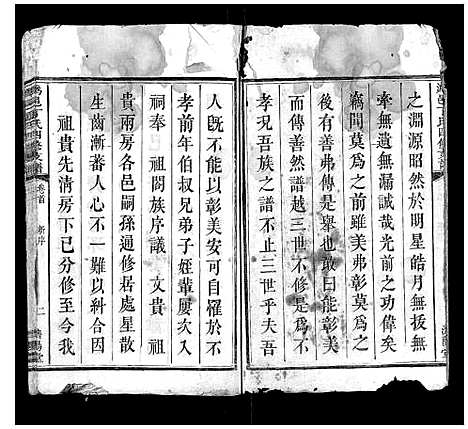 之淵源昭然於明星皓月無援無
牽無遺無漏誠哉光前之功偉矣
竊聞莫為之前雖美弗彰莫為之
後有善弗傳是舉也敢曰能彰美
而傳善然譜越三世不修是為不
孝況吾族之譜不止三世乎夫吾
人既不能以彰美安可自罹於不
孝前年伯叔兄弟子姪輩屢次入
祠奉 祖閱族序議 文貴 祖
貴兩房各邑嗣孫通修居處星散
生齒漸蕃人心不一難以糾合因
祖貴先清房下已分修至今我
卷首
新序
二